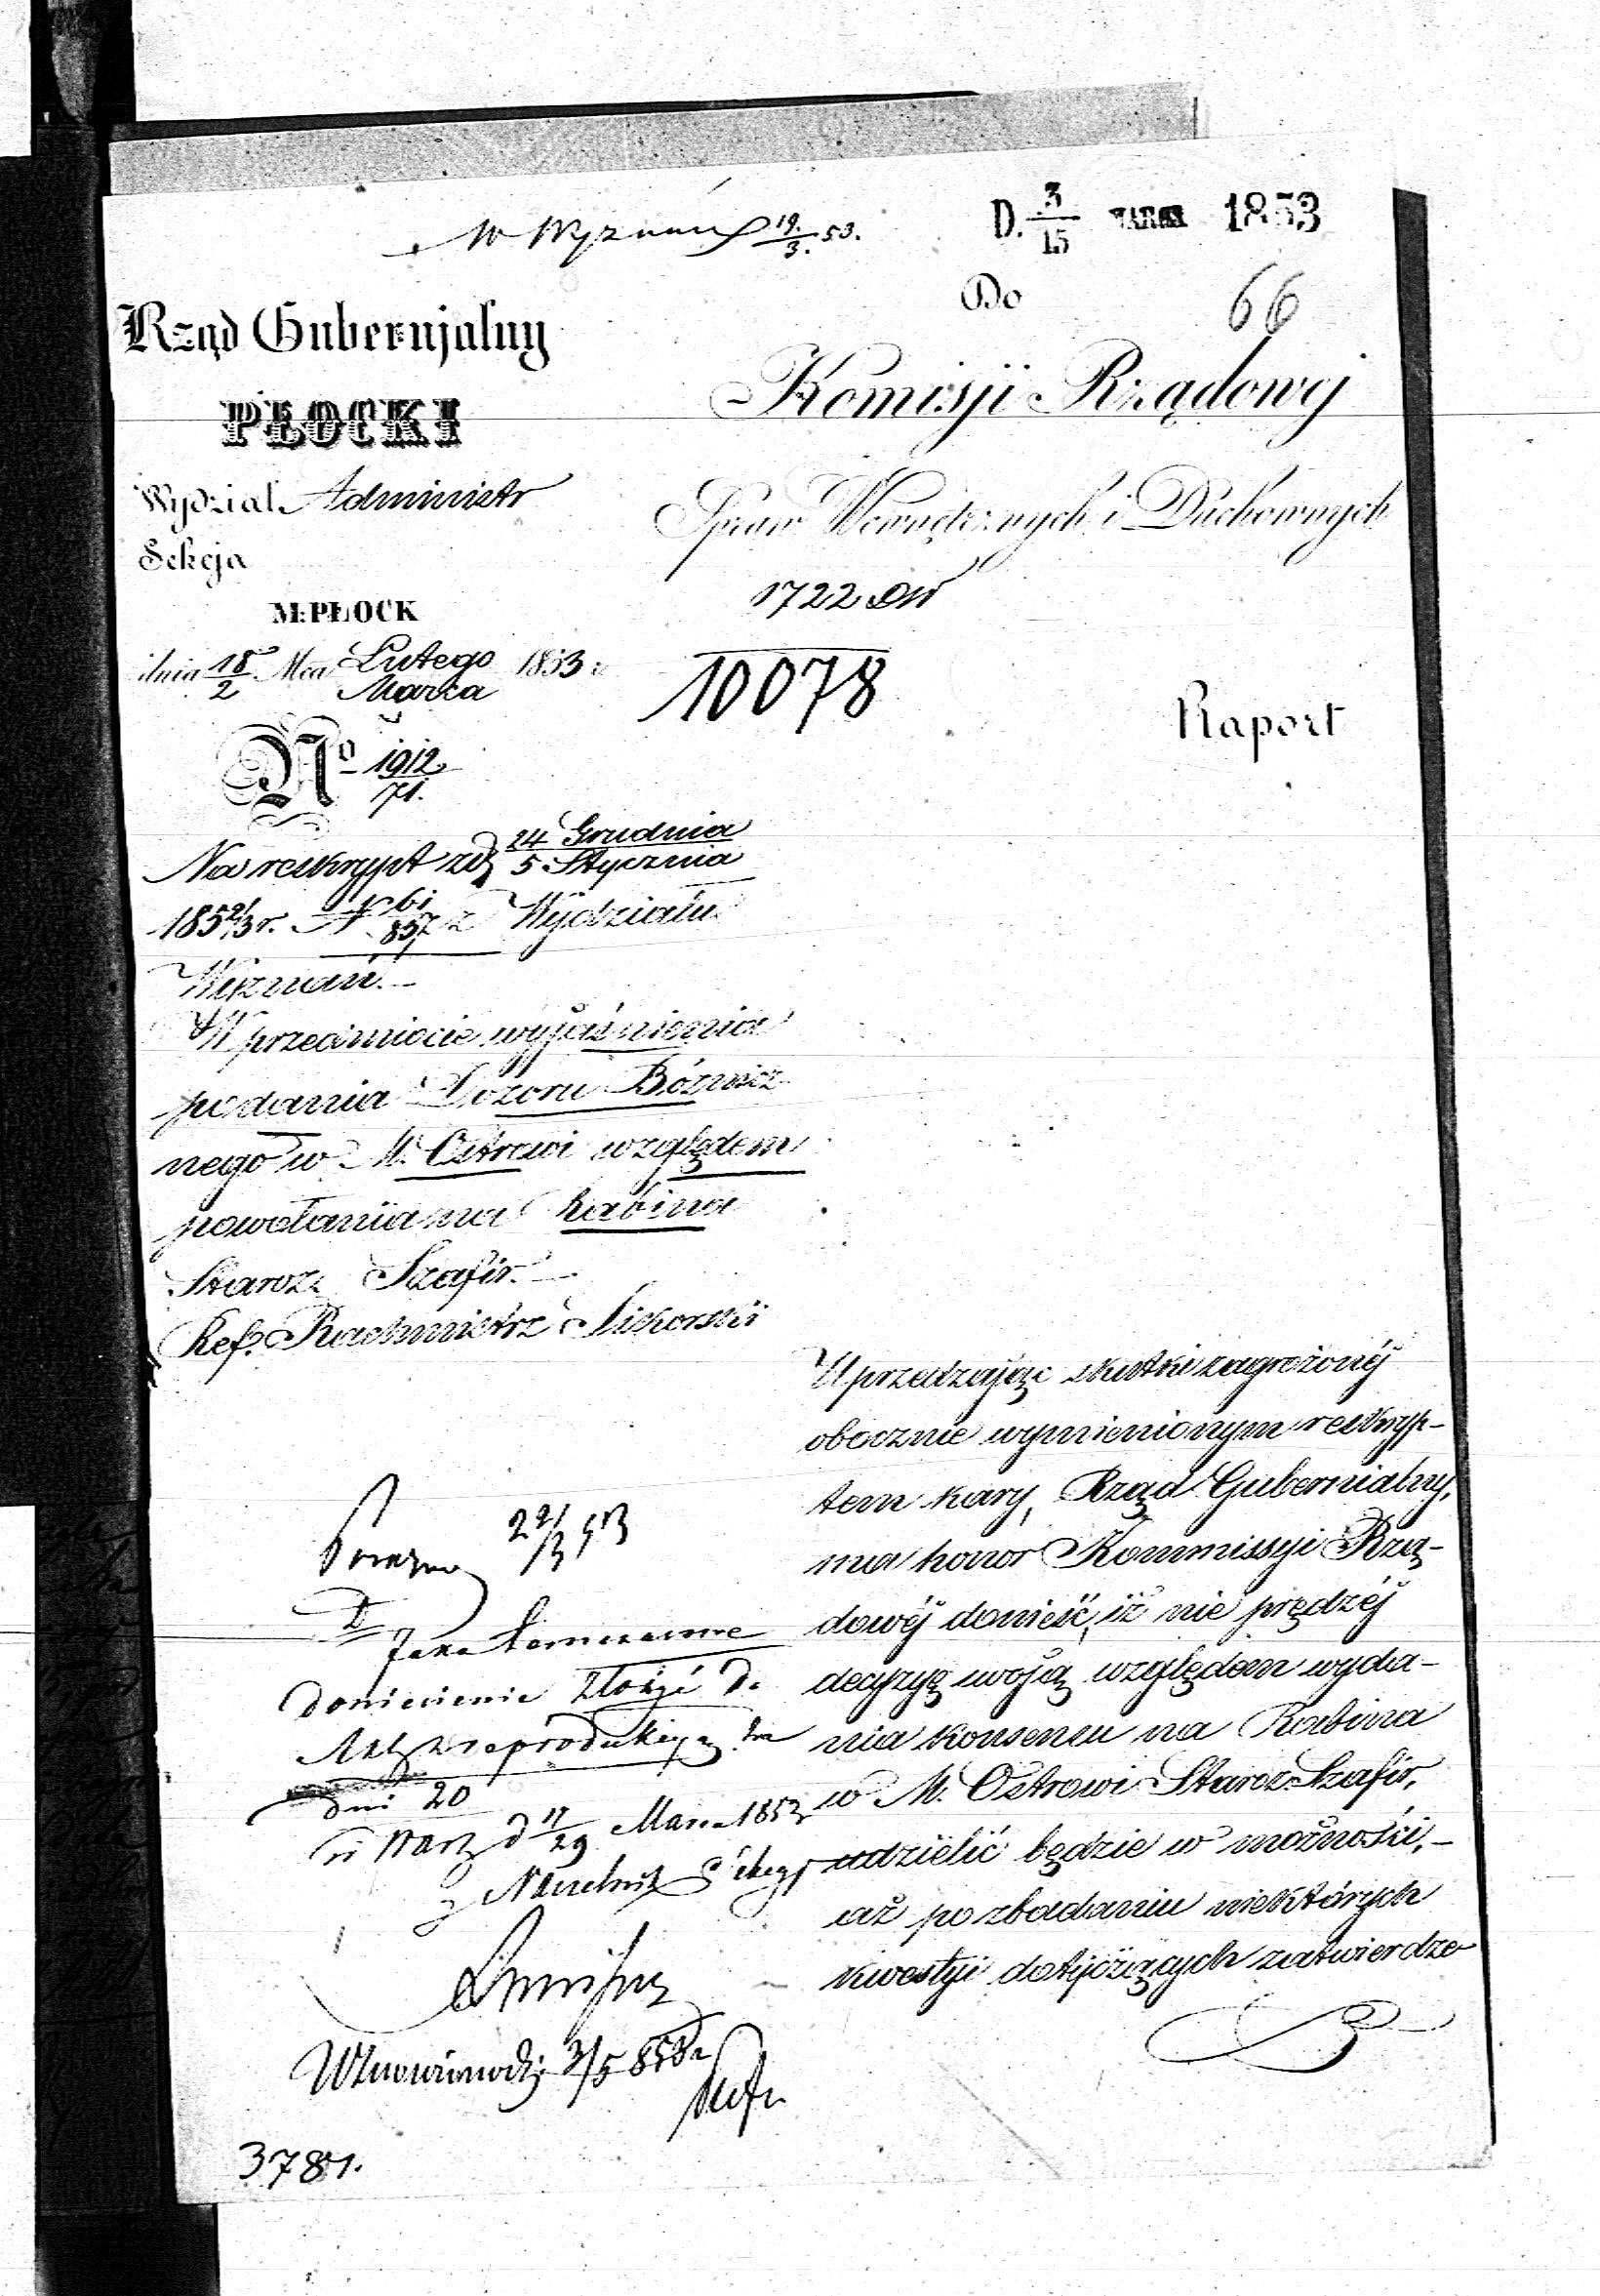 W Wyznań 19/3. 53.
D. 3/15 MARCA 1853
Do
66
Rząd Gubernjalny
PŁOCKI
Komisji Rządowej
Wydział Administr
Spraw Wewnętrznych i Duchownych
Sekcja
M: PŁOCK
1722 DW
dnia 18/2 Mca Lutego/Marca 1853 r
10078
Raport
No 1912/71.
Na reskrypt z d. 24 Grudnia/5 Stycznia
1852/3 r. N 61/857 z Wydziału
Wyznań.–
W przedmiocie wyjaśnienia
podania Dozoru Bóźnicz
nego w M. Ostrowi względem
powołania na Rabina
Staroz. Szafir.–
Ref. Rachmistrz Sikorski
Uprzedzając skutki zagrożonéj
obocznie wymienionym reskryp-
tem kary, Rząd Gubernialny,
ma honor Kommissyi Rzą-
dowéj donieść, iż nie prędzéj
decyzyę swoją względem wyda-
nia konsensu na Rabina
w M. Ostrowi Staroz. Szafir,
udzielić będzie w możności,–
aż po zbadaniu niektórych
kwestyi dotyczących zatwierdze-
22/3 53
D
Jako tymczasowe
doniesienie złożyć do
Akt z reprodukcyą za
dni 20
w Warsz d 17/29 Marca 1853
Naczelnik Sekcyi
3/5 853
3781.